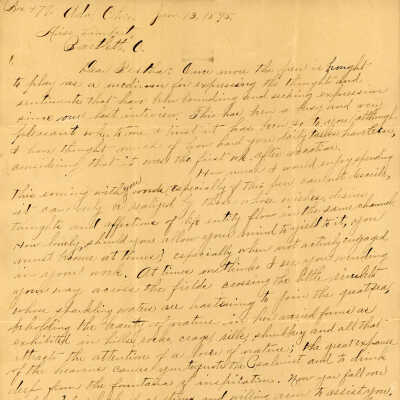 Box 476 Ada, Ohio, Jan. 13, 1895.
Miss
Bartlett, O.
Dear Bertha: Once more the pen is brought
to play as a medium for expressing the thoughts and
sentiments that have been bounding and seeking expression
since our last interview. This has been a busy and very
pleasant week to me & trust it has been so to you, although
I have thought much of how hard your daily tasks have been,
considering that it was the first wk. after vacation.
How much I would enjoy spending
this evening with you would especially if this pen
is realized by those whose wishes, desires,
thoughts and affections of life entity flow in the same channel.
How lonely, should you allow your mind to yield to it, you
must be at times; especially when not actively engaged
in your work. At times methinks I see you wending
your way across the fields crossing the little streamlet
whose sparkling waters are hastening to join the great sea,
beholding the beauty of nature in her varied forms as
exhibited in hills, rocks, crags, rills, shrubbery and all that
attract the attention of a lover of nature; the great expanse
of the heavens causes you to quote the Psalmist and to drink
deep from the fountains of inspiration. Now you fall over
and willing arm to assist you,